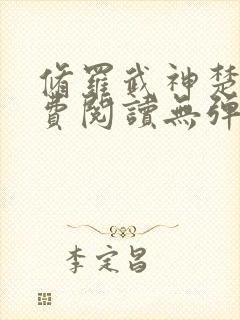 脩羅武神楚
費閱讀無彈
李定昌